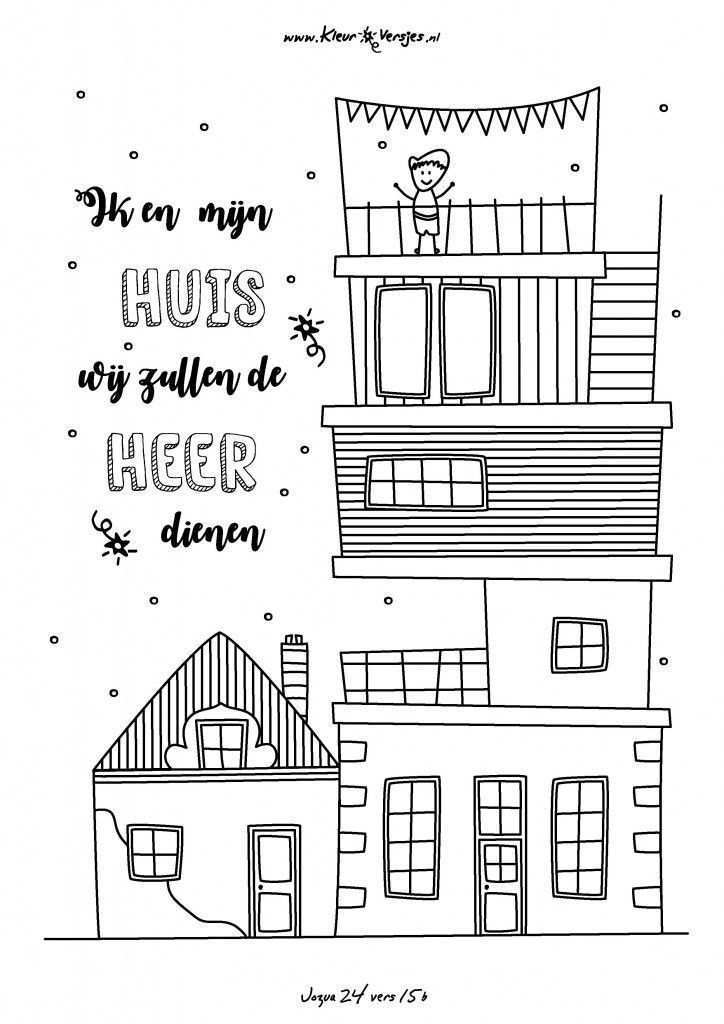 www.KleurVersjes.nl
Ik en mijn
HUIS
wij zullen de
HEER
dienen
Jozua 24 vers 15b